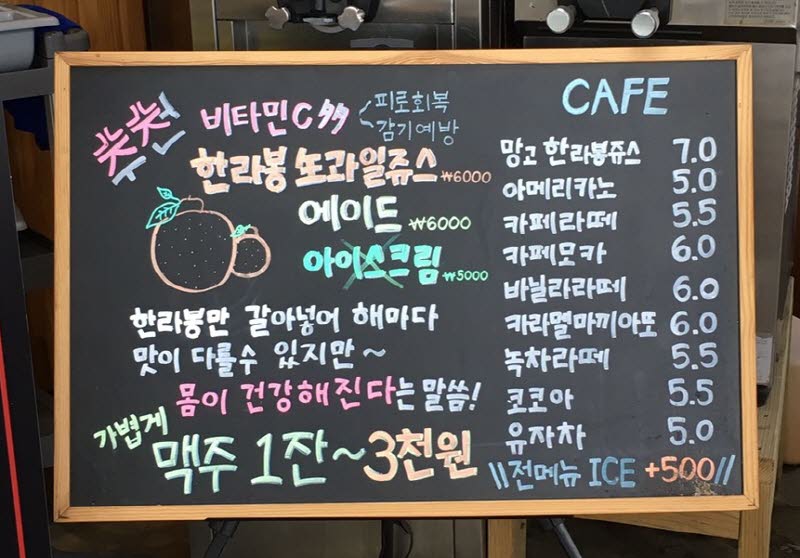 추천
비타민C 多
피로회복
감기예방
한라봉 쌩과일쥬스 ₩6000
에이드 ₩6000
아이스크림 ₩5000
한라봉만 갈아넣어 해마다
맛이 다를수 있지만~
몸이 건강해진다는 말씀!
가볍게
맥주 1잔~3천원
CAFE
망고 한라봉쥬스 7.0
아메리카노 5.0
카페라떼 5.5
카페모카 6.0
바닐라라떼 6.0
카라멜마끼아또 6.0
녹차라떼 5.5
코코아 5.5
유자차 5.0
\\전메뉴 ICE +500//